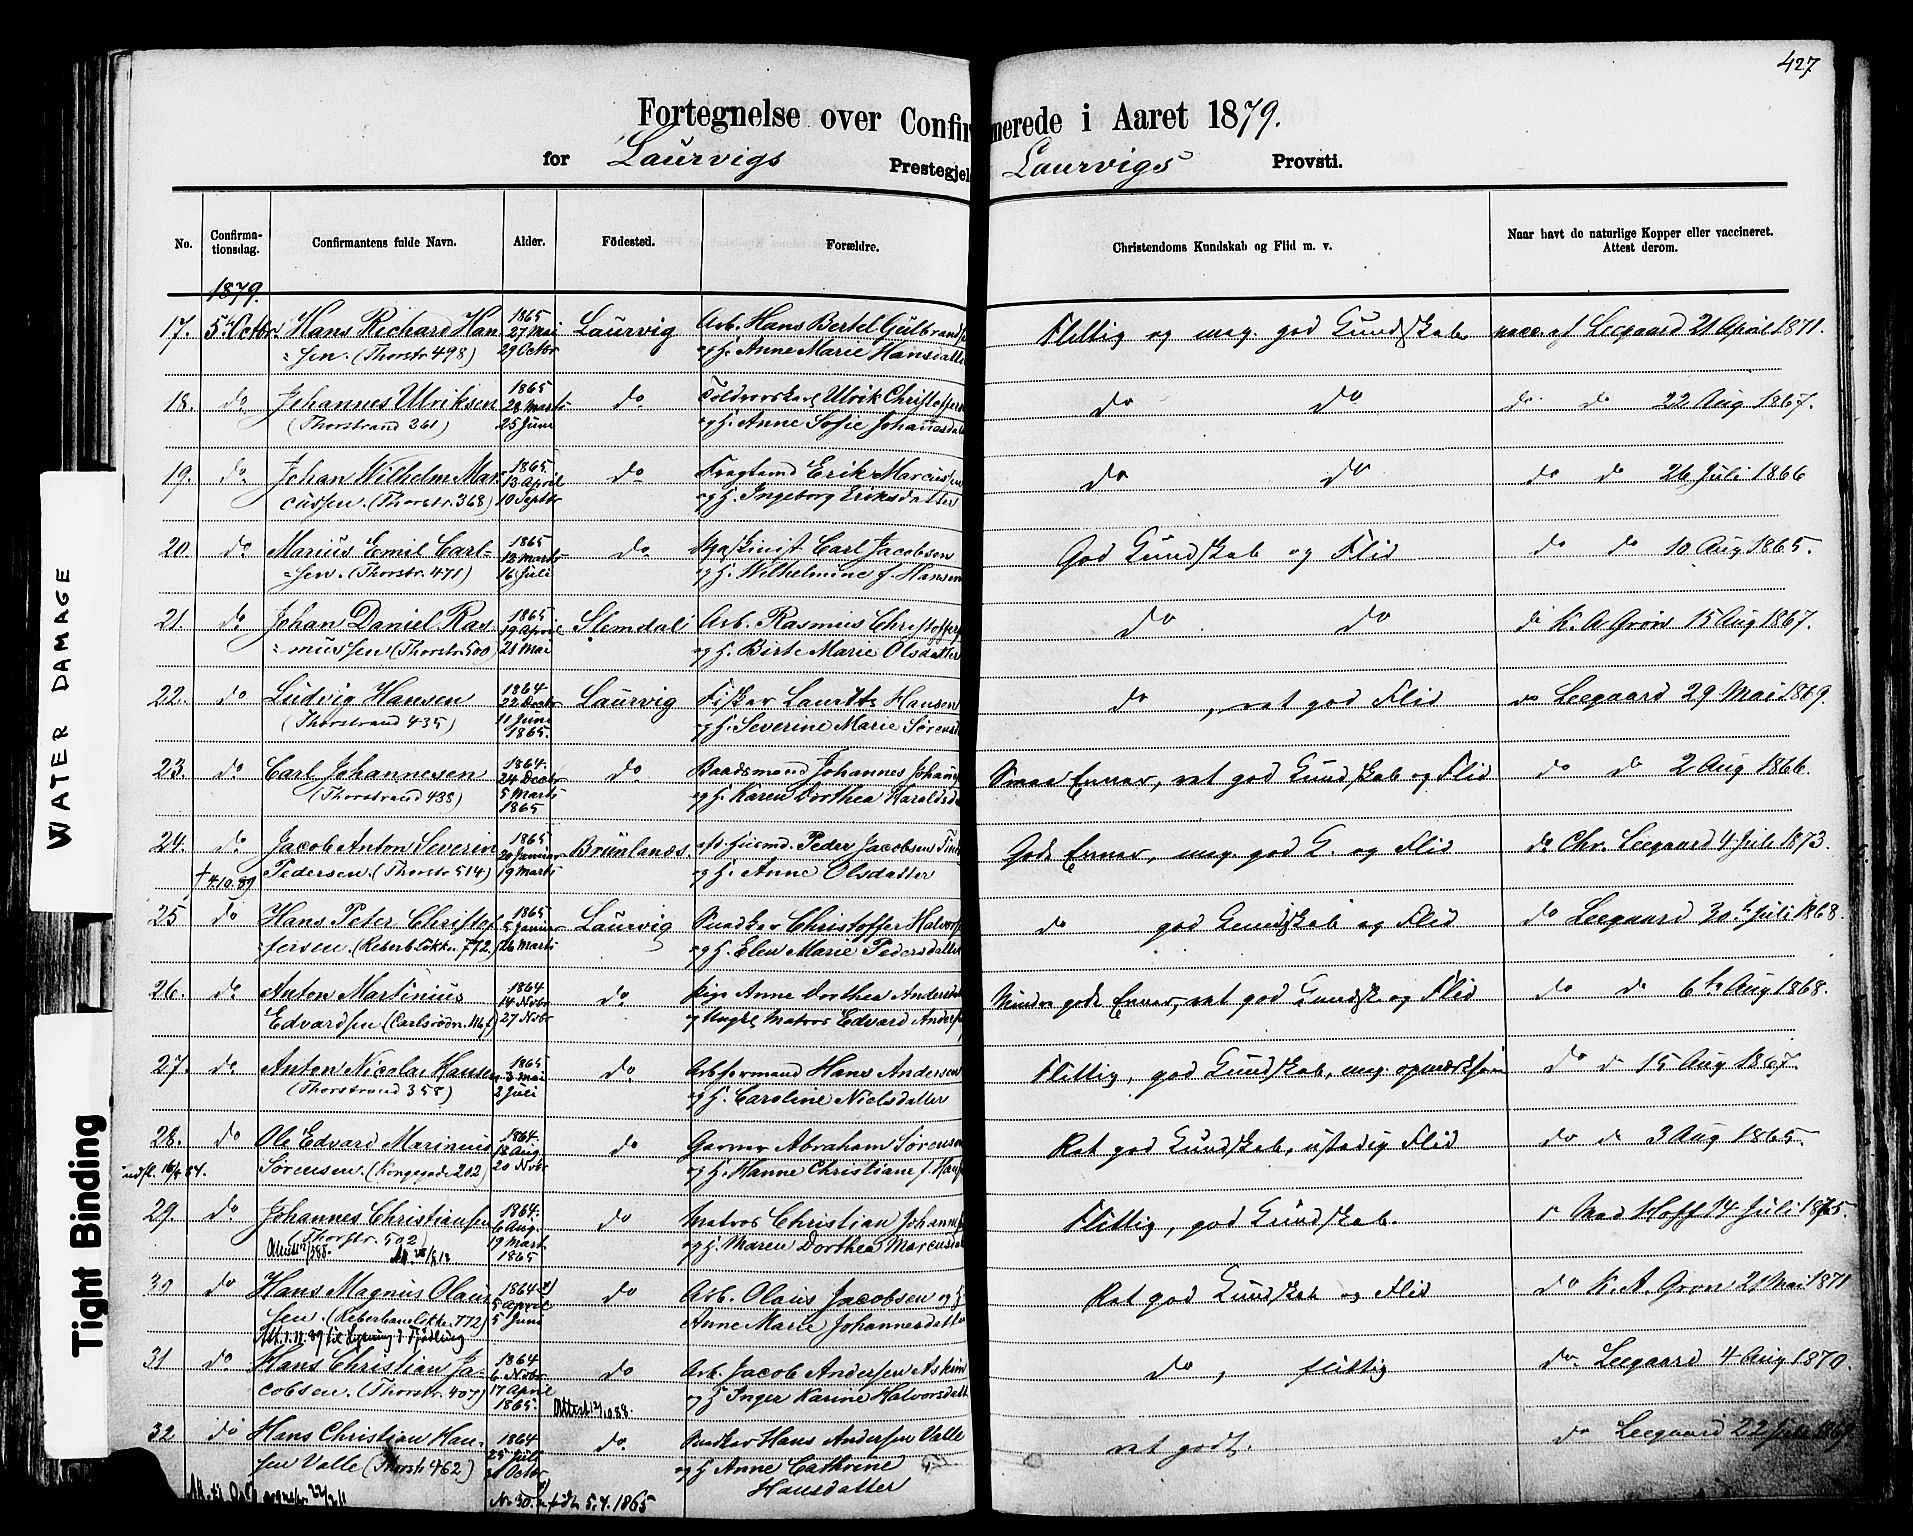 427
Fortegnelse over Confirmerede i Aaret 1879.
for Laurvigs Prestegjel Laurvigs Provsti.
No. Confirma-tionsdag. Confirmantens fulde Navn. Alder. Födested. Forældre. Christendoms Kundskab og Flid m. v. Naar havt de naturlige Kopper eller vaccineret. Attest derom.
1879.
17. 5 Octbr. Hans Richard Han 1865 27 Mai Laurvig Arb. Hans Bertel Gulbrands Flittig og meg. god Kundskab vacc. af Leegaard 21 April 1871.
=sen. (Thorstr 498) 29 Octbr og H. Anne Marie Hansdatter
18. do Johannes Ulriksen 1865 28 Marts do Ulrik Christoffers do do do do 22 Aug 1867.
(Thorstrand 361) 25 Juni og H. Anne Sofie Johannesdatt
19. do Johan Wilhelm Mar 1865. 13 April do Fragtemd Erik Marcussen do do do do 26 Juli 1866
cussen. (Thorstr. 368) 10 Septbr og H. Ingeborg Eriksdatter
20. do Marius Emil Carl- 1865 12 Marts do Maskinist Carl Jacobsen God Kundskab og Flid do do 10 Aug 1865.
=sen. (Thorstr. 471) 16 Juli og H. Wilhelmine f. Hansen
21. do Johan Daniel Ras 1865 19 April Slemdal Arb. Rasmus Christoffers do do do K. A Grøn 15 Aug 1867.
=mussen (Thorstr. 500) 21 Mai og H. Birte Marie Olsdatter
22. do Ludvig Hansen 1864 22 Decbr Laurvig Fisker Lauritz Hansen do , ret god Flid do Leegaard 29 Mai 1869.
(Thorstrand 435) 11 Juni 1865. og H. Severine Marie Sørens
23. do Carl Johannesen 1864. 24 Decbr do Baadsmand Johannes Johann Smaa Evner, ret god Kundskab og Flid do do 2 Aug 1866.
(Thorstrand 438) 5 Marts 1865 og H. Karen Dorthea Haralds
24. do Jacob Anton Severin 1865 20 Januar Brunlanæs. Husmd. Peder Jacobsen Gode Evner, meg. god K. og Flid do Chr. Leegaard 4 Juli 1873.
† 4.10.89 Pedersen. (Thorstr 514) 19 Marts og H. Anne Olsdatter
25 do Hans Peter Christof 1865 5 Januar Laurvig Snedker Christoffer Halvors do god Kundskab og Flid do Leegaard 30 Juli 1868.
=fersen. (Reberb.løkke. 772) 26 Marts og H. Elen Marie Pedersdatter
26. do Anton Martinius 1864 14 Novbr do. Pige Anne Dorthea Andersd Mindre gode Evner, ret god Kundsk. og Flid do do 6 Aug 1868.
Edvardsen 27 Novbr og Ungkl Matros Edvard Anders
27. do Anton Nicolai Hansen 1865 3 Mai do Arbformand Hans Andersen Flittig, god Kundskab, meg. opmærksom do do 15 Aug 1867.
(Thorstrand 358) 2 Juli og H. Caroline Nielsdatter
28. do Ole Edvard Marinius 1864. 18 Aug. do Garver Abraham Sørensen Ret god Kundskab, ustadig Flid do do 3 Aug 1865.
Sørensen. (Kongegade 202) 20 Novbr og H. Hanne Christiane f. Hans
29. do Johannes Christiansen 1864. 6 Aug. do Matros Christian Johannes Flittig, god Kundskab. Mad Hoff 14 Juli 1875.
(Thorstr. 502) 19 Marts 1865 og H. Maren Dorthea Marcusdatt
30 do Hans Magnus Olaus 1864 5 April do Arb. Olaus Jacobsen og H Ret god Kundskab og Flid do K. A. Grøn 21 Mai 1871
sen. (Reberbaneløkke. 772) 5 Juni Anne Marie Johannesdatter
Att. 1.11.89 til Lysning i Tjødling
31 do Hans Christian Ja- 1864 6 Novbr do Arb. Jacob Andersen Askim do , flittig do Leegaard 4 Aug 1870.
cobsen. (Thorstr. 407) 17 April 1865. og H Inger Karine Halvorsdatt
Attest 12/10 88.
32 do Hans Christian Han- 1864 25 Juli do. Snedker Hans Andersen Valle ret godt. do Leegaard 22 Juli
sen Valle (Thorstr 462) Octbr og H Anne Cathrine
Hansdatter
No 30. født 5.4.1865
WATER DAMAGE
Tight Binding